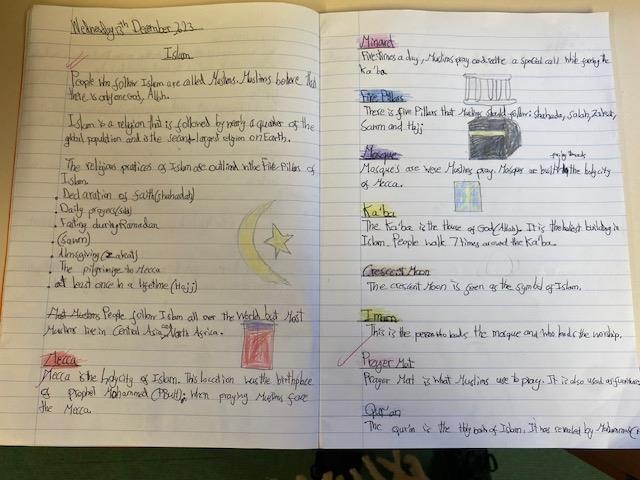 Wednesday 13th December 2023
Islam
People who follow Islam are called Muslims. Muslims believe that
there is only one God, Allah.
Islam is a religion that is followed by nearly a quarter of the
global population and is the second largest religion on Earth.
The religious practices of Islam are outlined in the Five Pillars of
Islam.
• Declaration of faith (shahadah)
• Daily prayers (salah)
• Fasting during Ramadan
• (Sawm)
• Almsgiving (Zakat)
• The pilgrimage to Mecca
• at least once in a lifetime (Hajj)
Most Muslims People follow Islam all over the world but Most
Muslims live in Central Asia, North Africa.
Mecca
Mecca is the holy city of Islam. This location was the birthplace
of prophet Mohammed (PBUH). When praying Muslims face
the Mecca.
Minaret
Five times a day, Muslims pray and a special call while facing the
Ka'ba
Five Pillars
There is five Pillars that Muslims should follow: shahada, salah, Zakat,
Sawm and Hajj
Mosque
Mosques are were Muslims pray. Mosques are built the holy city
of Mecca.
Ka'ba
The Ka'ba is the House of God (Allah). It is the holiest building in
Islam. People walk 7 times around the Ka'ba.
Crescent Moon
The crescent Moon is seen as the symbol of Islam.
Imam
This is the person who leads the mosque and who leads the worship.
Prayer Mat
Prayer Mat is what Muslims use to pray. It is also used as
Qur'an
The qur'an is the Holy book of Islam. It was revealed by